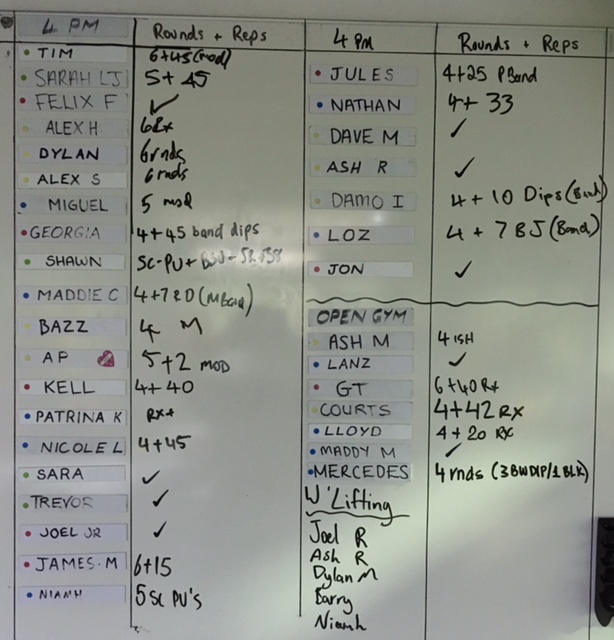 4 PM Rounds + Reps
TIM 6+45 (mod)
SARAH LJ 5+45
FELIX F ✓
ALEX H 6Rx
DYLAN 6rnds
ALEX S 6rnds
MIGUEL 5 mod
GEORGIA 4+45 band dips
SHAWN SC-PU+
MADDIE C 4+7
BAZZ 4 M
AP 5+2 MOD
KELL 4+40
PATRINA K RX+
NICOLE L 4+45
SARA ✓
TREVOR ✓
JOEL JR ✓
JAMES M 6+15
NIAMH 5 SC PU'S
4 PM Rounds + Reps
JULES 4+25 PBand
NATHAN 4+33
DAVE M ✓
ASH R ✓
DAMO I 4+10 Dips (Band)
LOZ 4+7 BJ (Band)
JON ✓
OPEN GYM
ASH M 4ish
LANZ ✓
GT 6+40 Rx
COURTS 4+42 RX
LLOYD 4+20 RX
MADDY M ✓
MERCEDES 4 rnds (3BWDIP/1BLK)
W'Lifting
Joel R
Ash R
Dylan M
Barry
Niamh